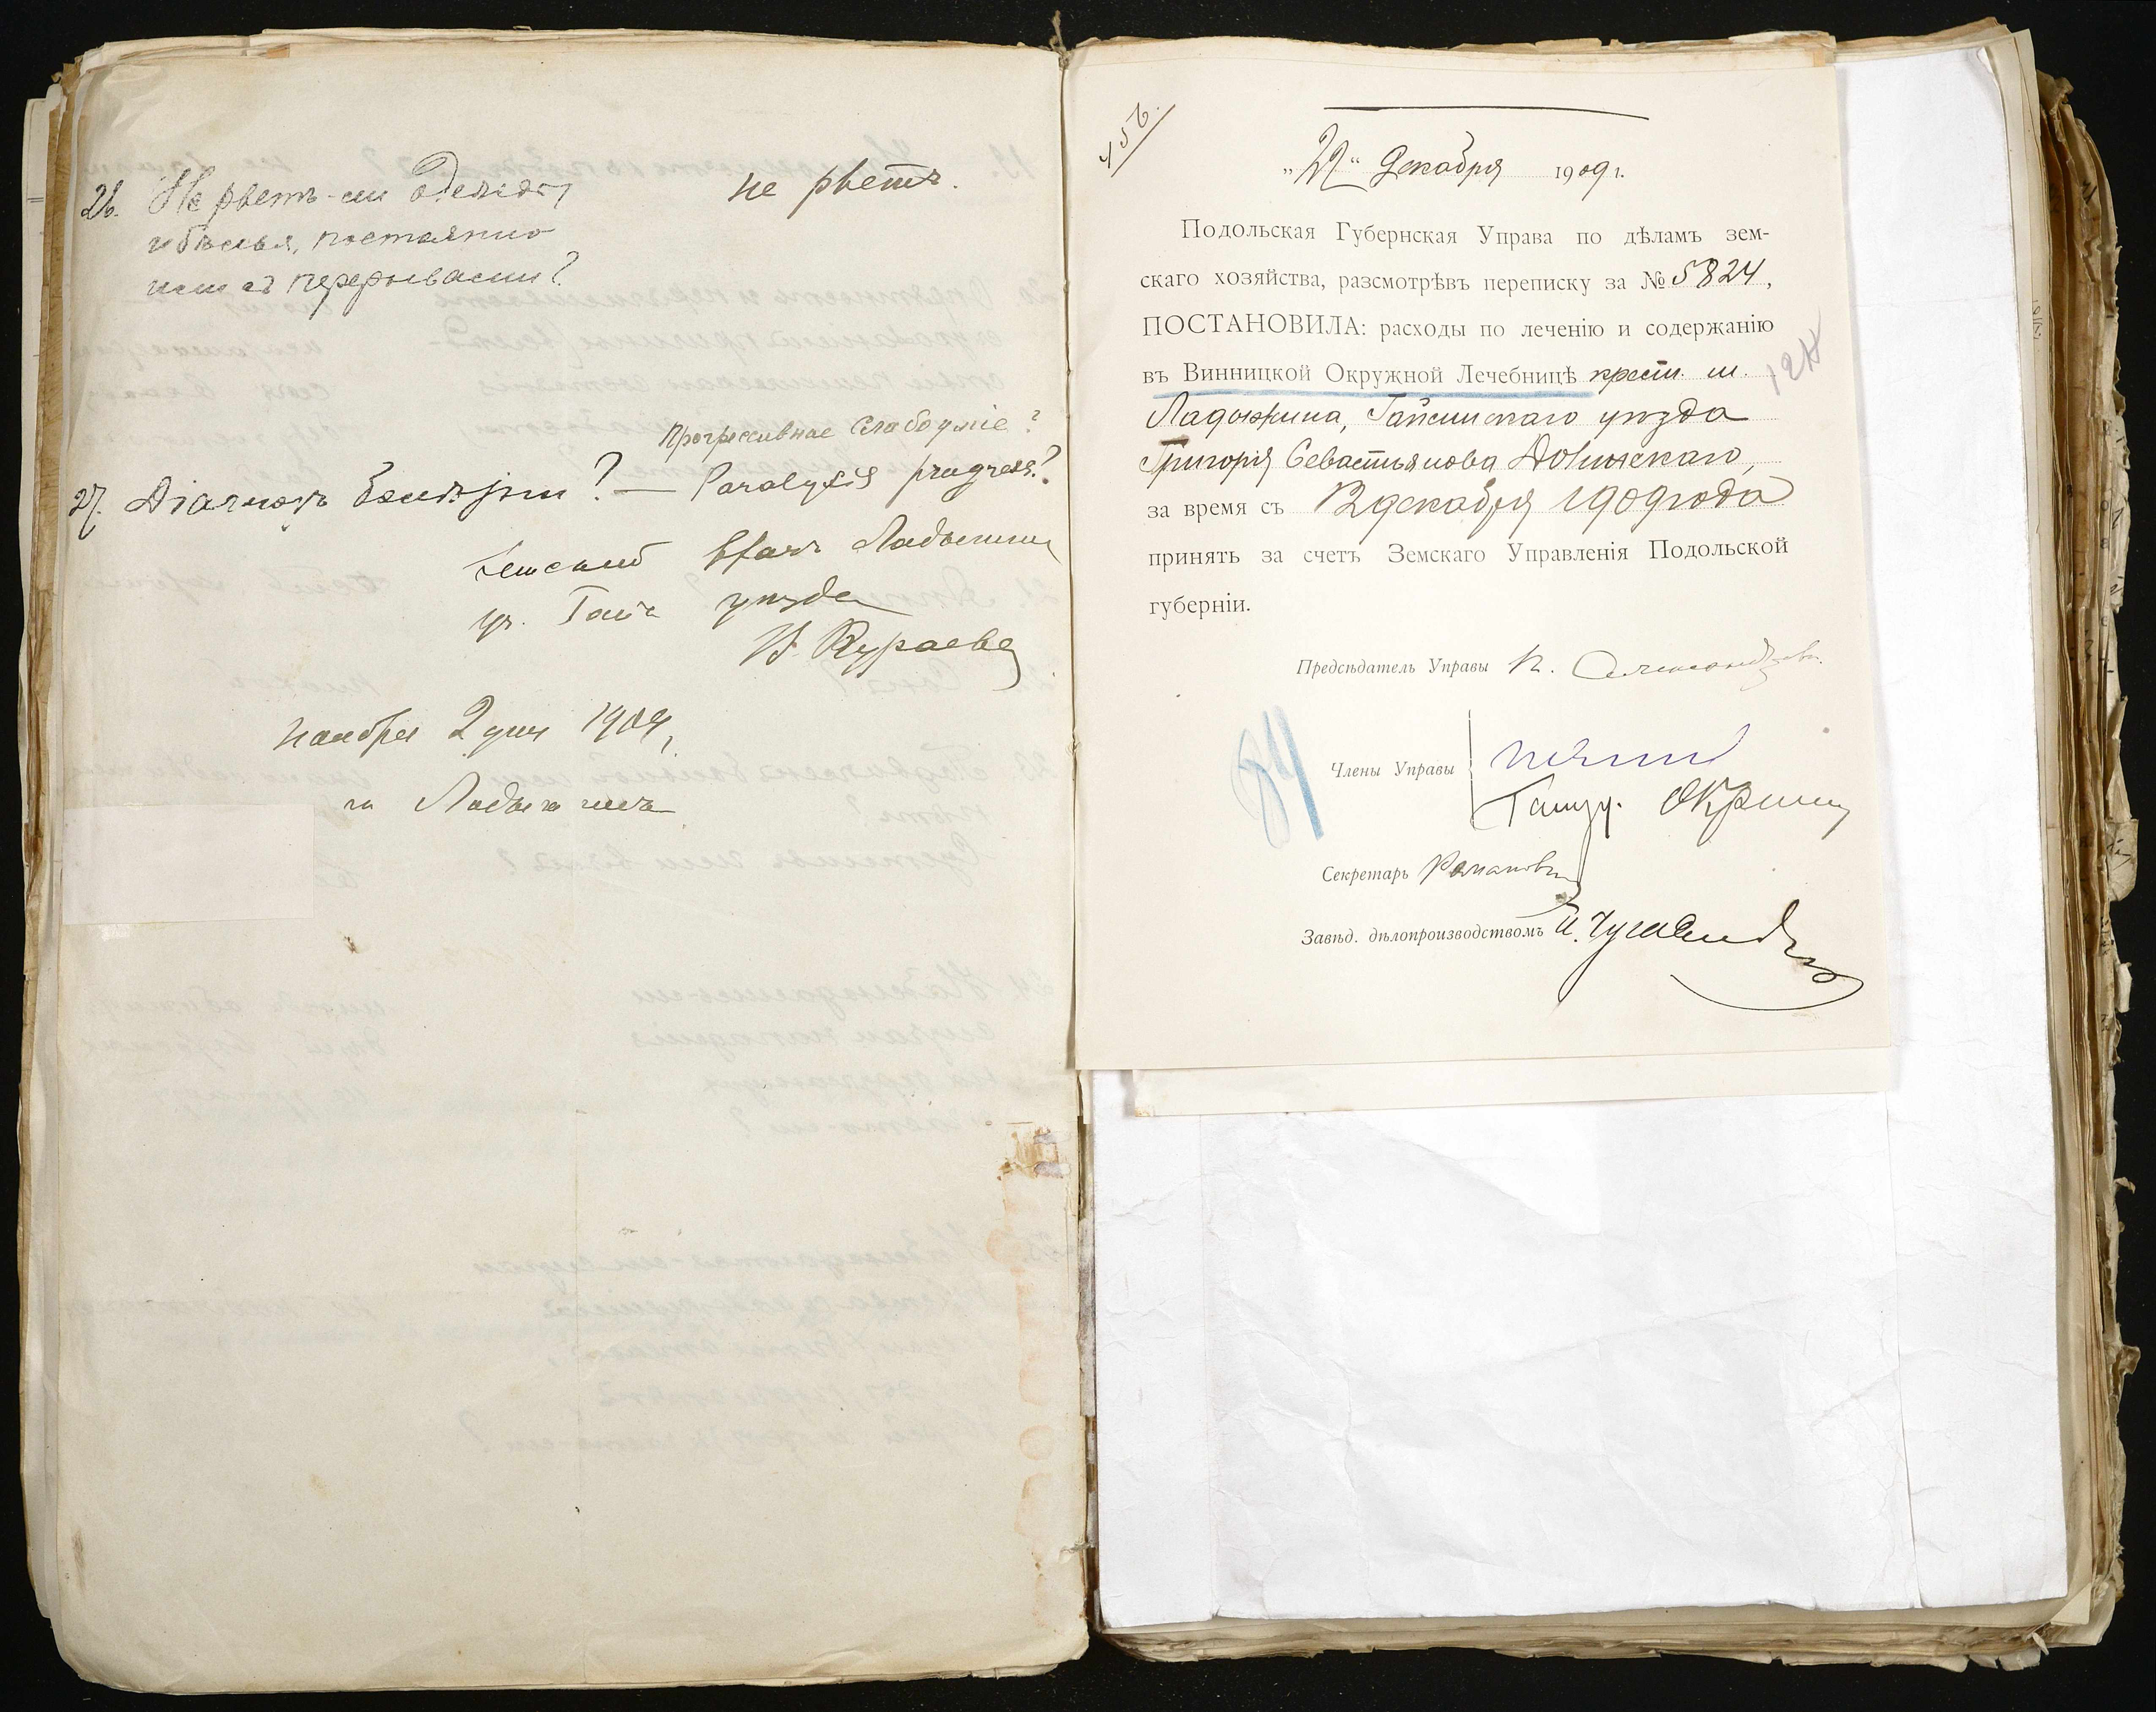 26. Не рветъ-ли одежду не рветъ.
и бѣлья, постоянно
или съ перерывами?
Прогрессивное слабоуміе?
27. Діагнозъ болѣзни? — Paralysis progress.?
Земскій врачъ Ладыжин
уч. Гайс уѣзда
Ноября 2 дня 1909
м Ладыжинъ
456.
„22“ Декабря 1909 г.
Подольская Губернская Управа по дѣламъ зем-
скаго хозяйства, разсмотрѣвъ переписку за № 5824,
ПОСТАНОВИЛА: расходы по леченію и содержанію
въ Винницкой Окружной Лечебницѣ крест. м.
Ладыжина, Гайсинскаго уѣзда
Григорія Севастьянова
за время съ 12 декабря 1909 года
принять за счетъ Земскаго Управленія Подольской
губерніи.
Предсѣдатель Управы
84
Члены Управы
Секретарь Романов
Завѣд. дѣлопроизводствомъ